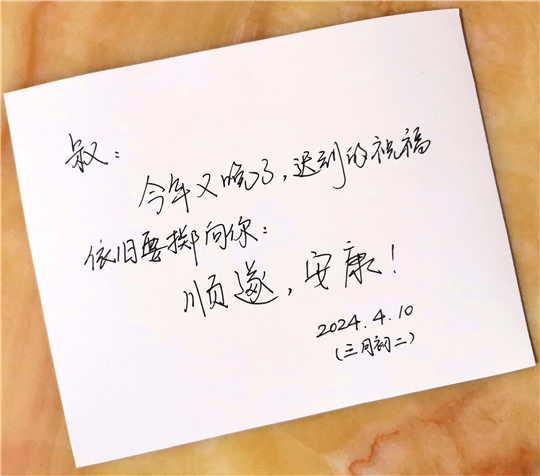 叔：
今年又晚了，迟到的祝福
依旧要掷向你：
顺遂，安康！
2024.4.10
(三月初二)